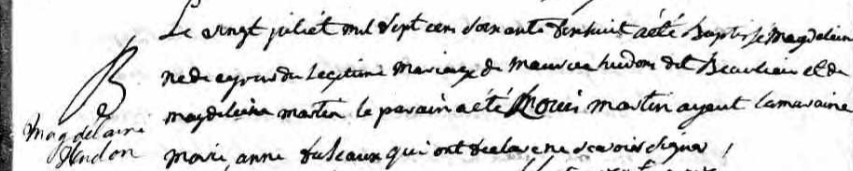 Le vingt juliét mil sept cens soixante dixhuit aété Baptisé Magdelein
B
née de ce jour du Legitime mariage de maurice hudon dit Beaulieu et de
magdeleine martin le parain a été Louis martin ayant lamaraine
magdelaine
hudon
marie anne duseaux qui ont declare ne scavoir signer